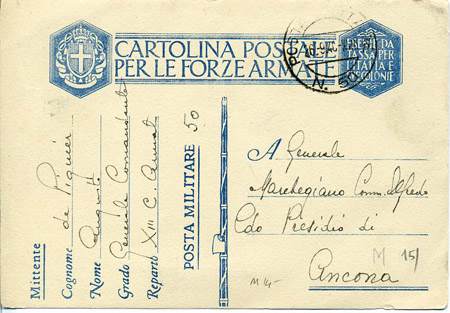 CARTOLINA POSTALE
PER LE FORZE ARMATE
ESENTE DA
TASSA PER
L'ITALIA E
COLONIE
POSTA
N. 50
Mittente
Cognome de Pignier
Nome
Grado Generale Comandante
Reparto XIII C. Armat
POSTA MILITARE 50
A Generale
Marchegiano Comm. Alfredo
Cdo Presidio di
Ancona
M 15/
M 14-